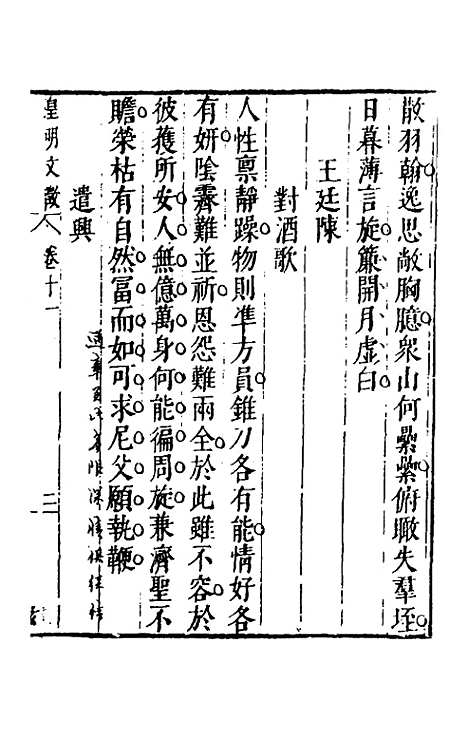 散羽翰逸思敞胸臆衆山何纍纍俯瞰失羣垤
日暮薄言旋簾開月虛白
王廷陳
對酒歌
人性禀靜躁物則準方員錐刀各有能情好各
有妍陰霽難並祈恩怨難兩全於此雖不容於
彼獲所安人無億萬身何能徧周旋兼濟聖不
贍榮枯有自然富而如可求尼父願執鞭
遣興
皇明文徵 卷十一 二